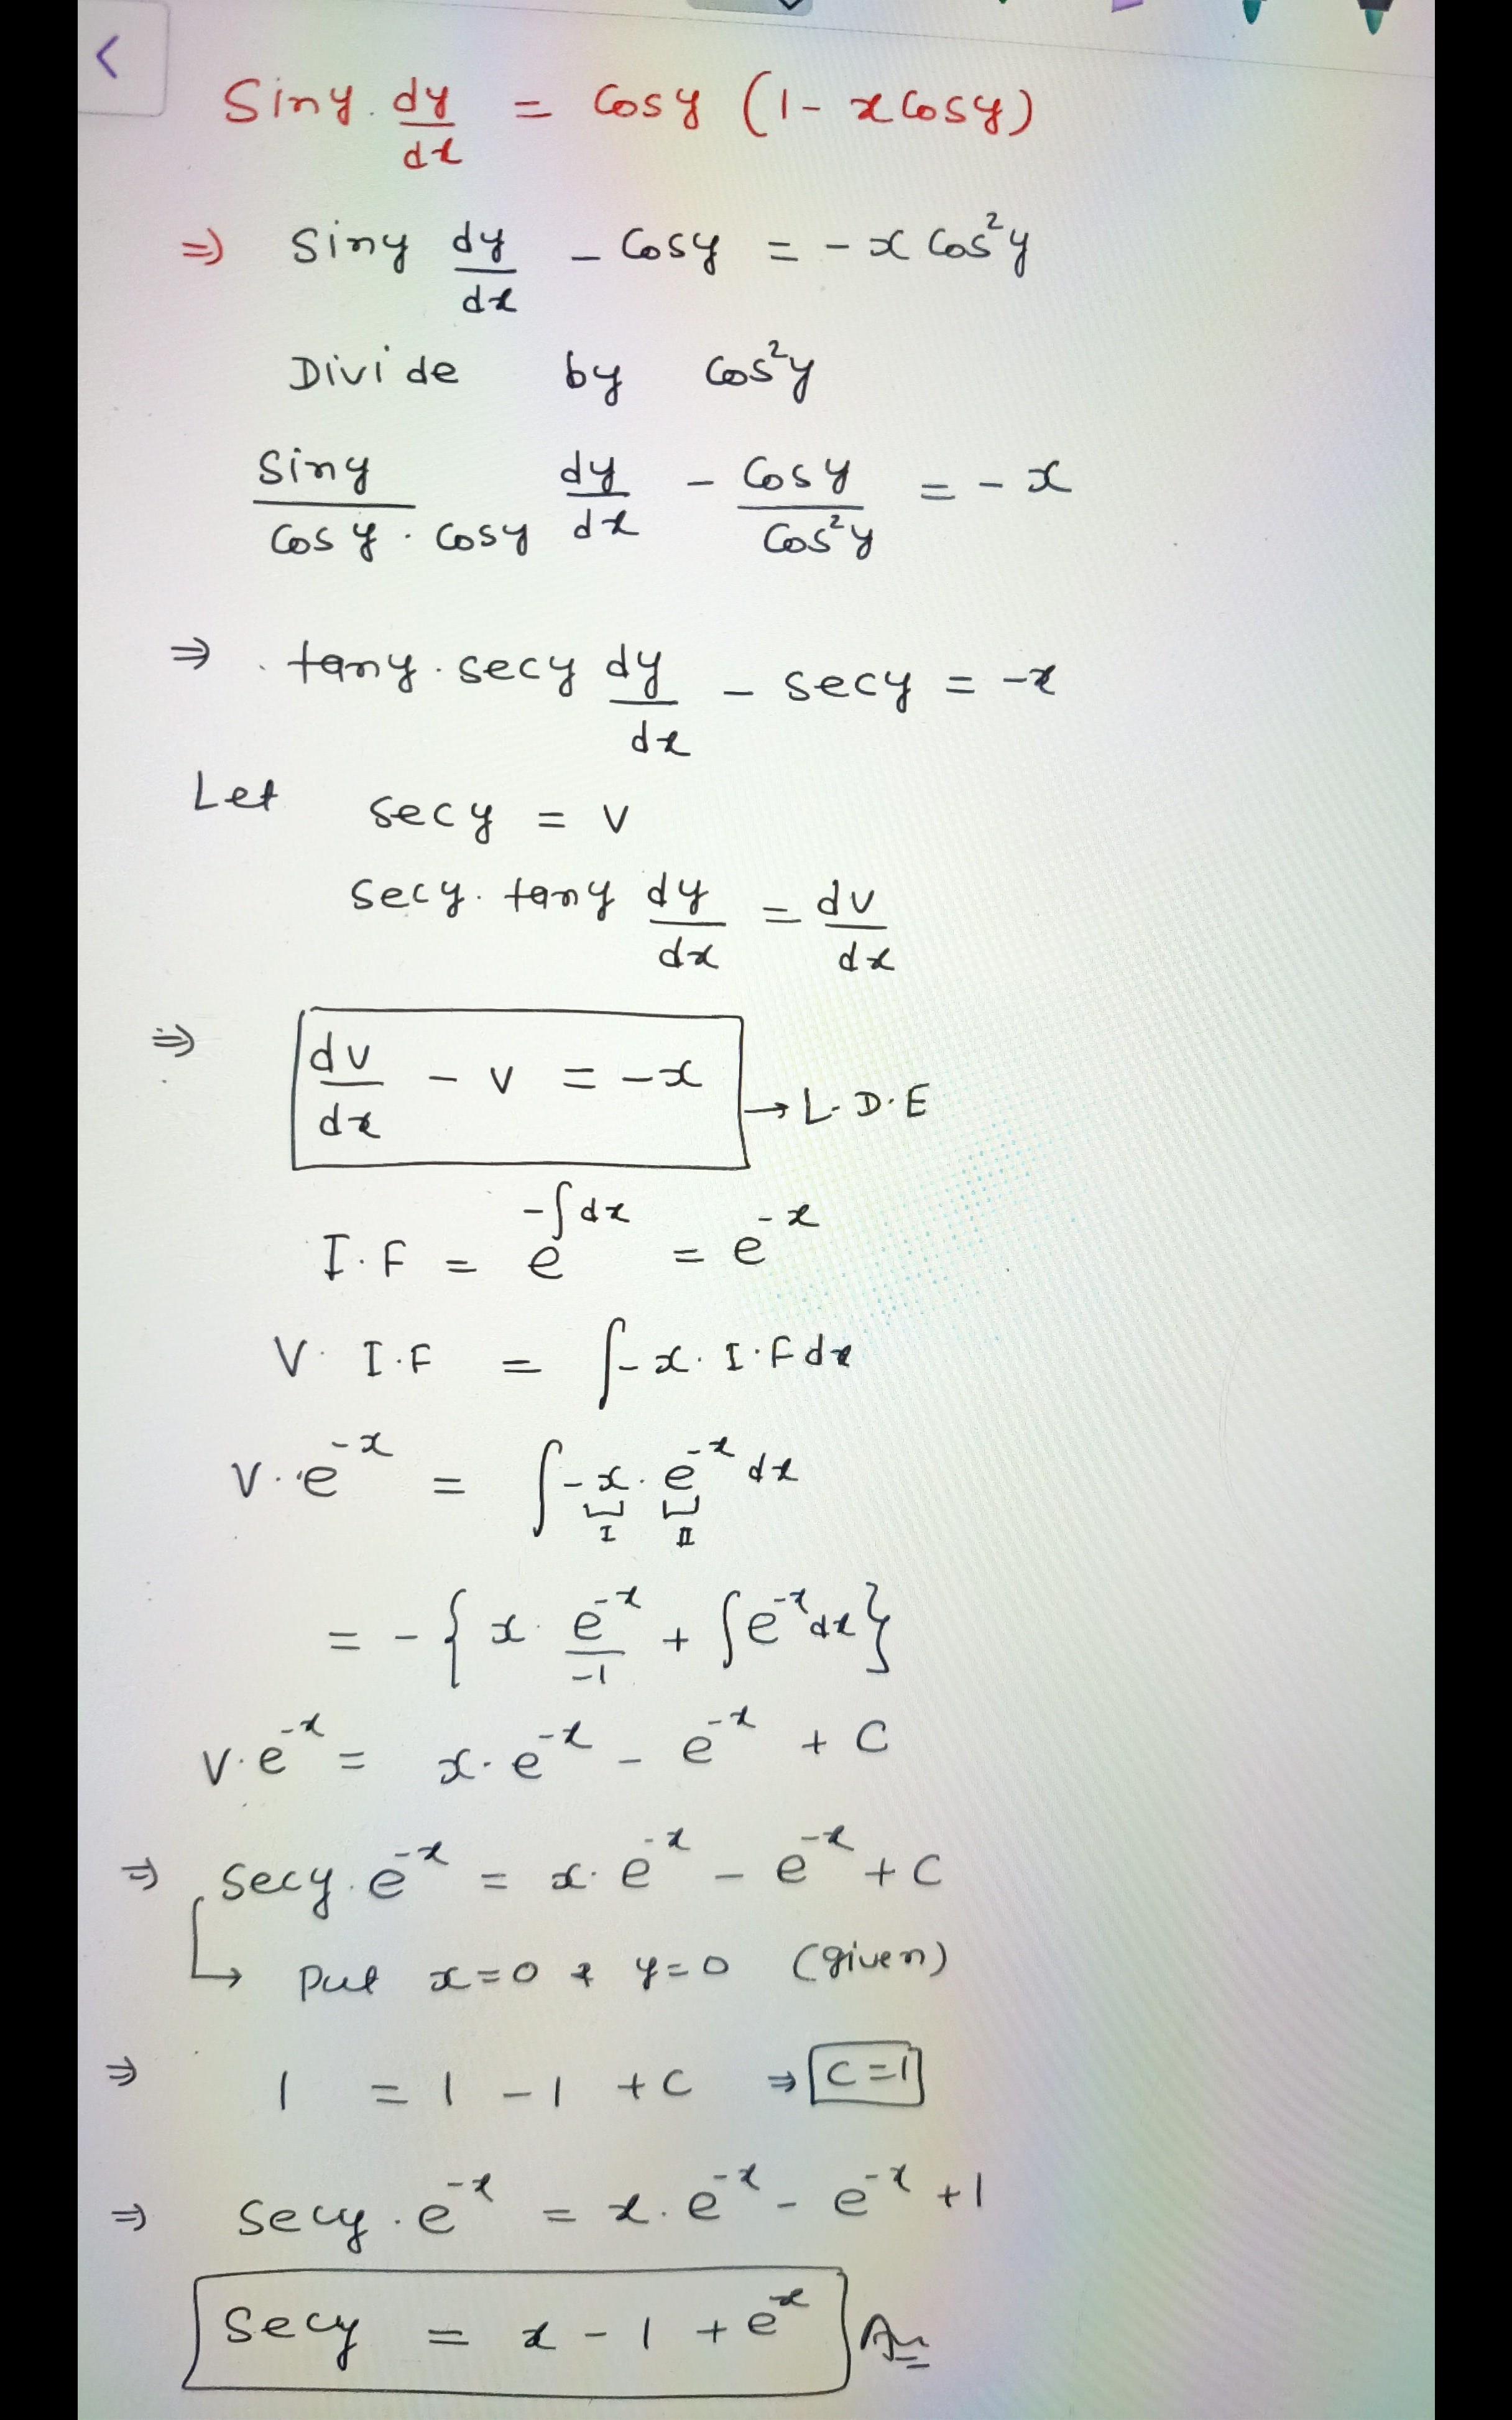 Siny. dy/dx = Cosy (1 - xCosy)
⇒ Siny dy/dx - Cosy = -x Cos²y
Divide by Cos²y
Siny/Cosy . Cosy dy/dx - Cosy/Cos²y = -x
⇒ tany . secy dy/dx - secy = -x
Let secy = v
secy. tany dy/dx = dv/dx
⇒ dv/dx - v = -x → L.D.E
I.F = e^(-∫dx) = e^(-x)
V. I.F = ∫-x. I.F dx
V. e^(-x) = ∫-x. e^(-x) dx
I II
= -{x. e^(-x)/-1 + ∫e^(-x)dx}
V.e^(-x) = x.e^(-x) - e^(-x) + C
⇒ secy. e^(-x) = x. e^(-x) - e^(-x) + C
↳ Put x=0 & y=0 (given)
⇒ 1 = 1 - 1 + C ⇒ C=1
⇒ Secy . e^(-x) = x. e^(-x) - e^(-x) + 1
Secy = x - 1 + e^x An